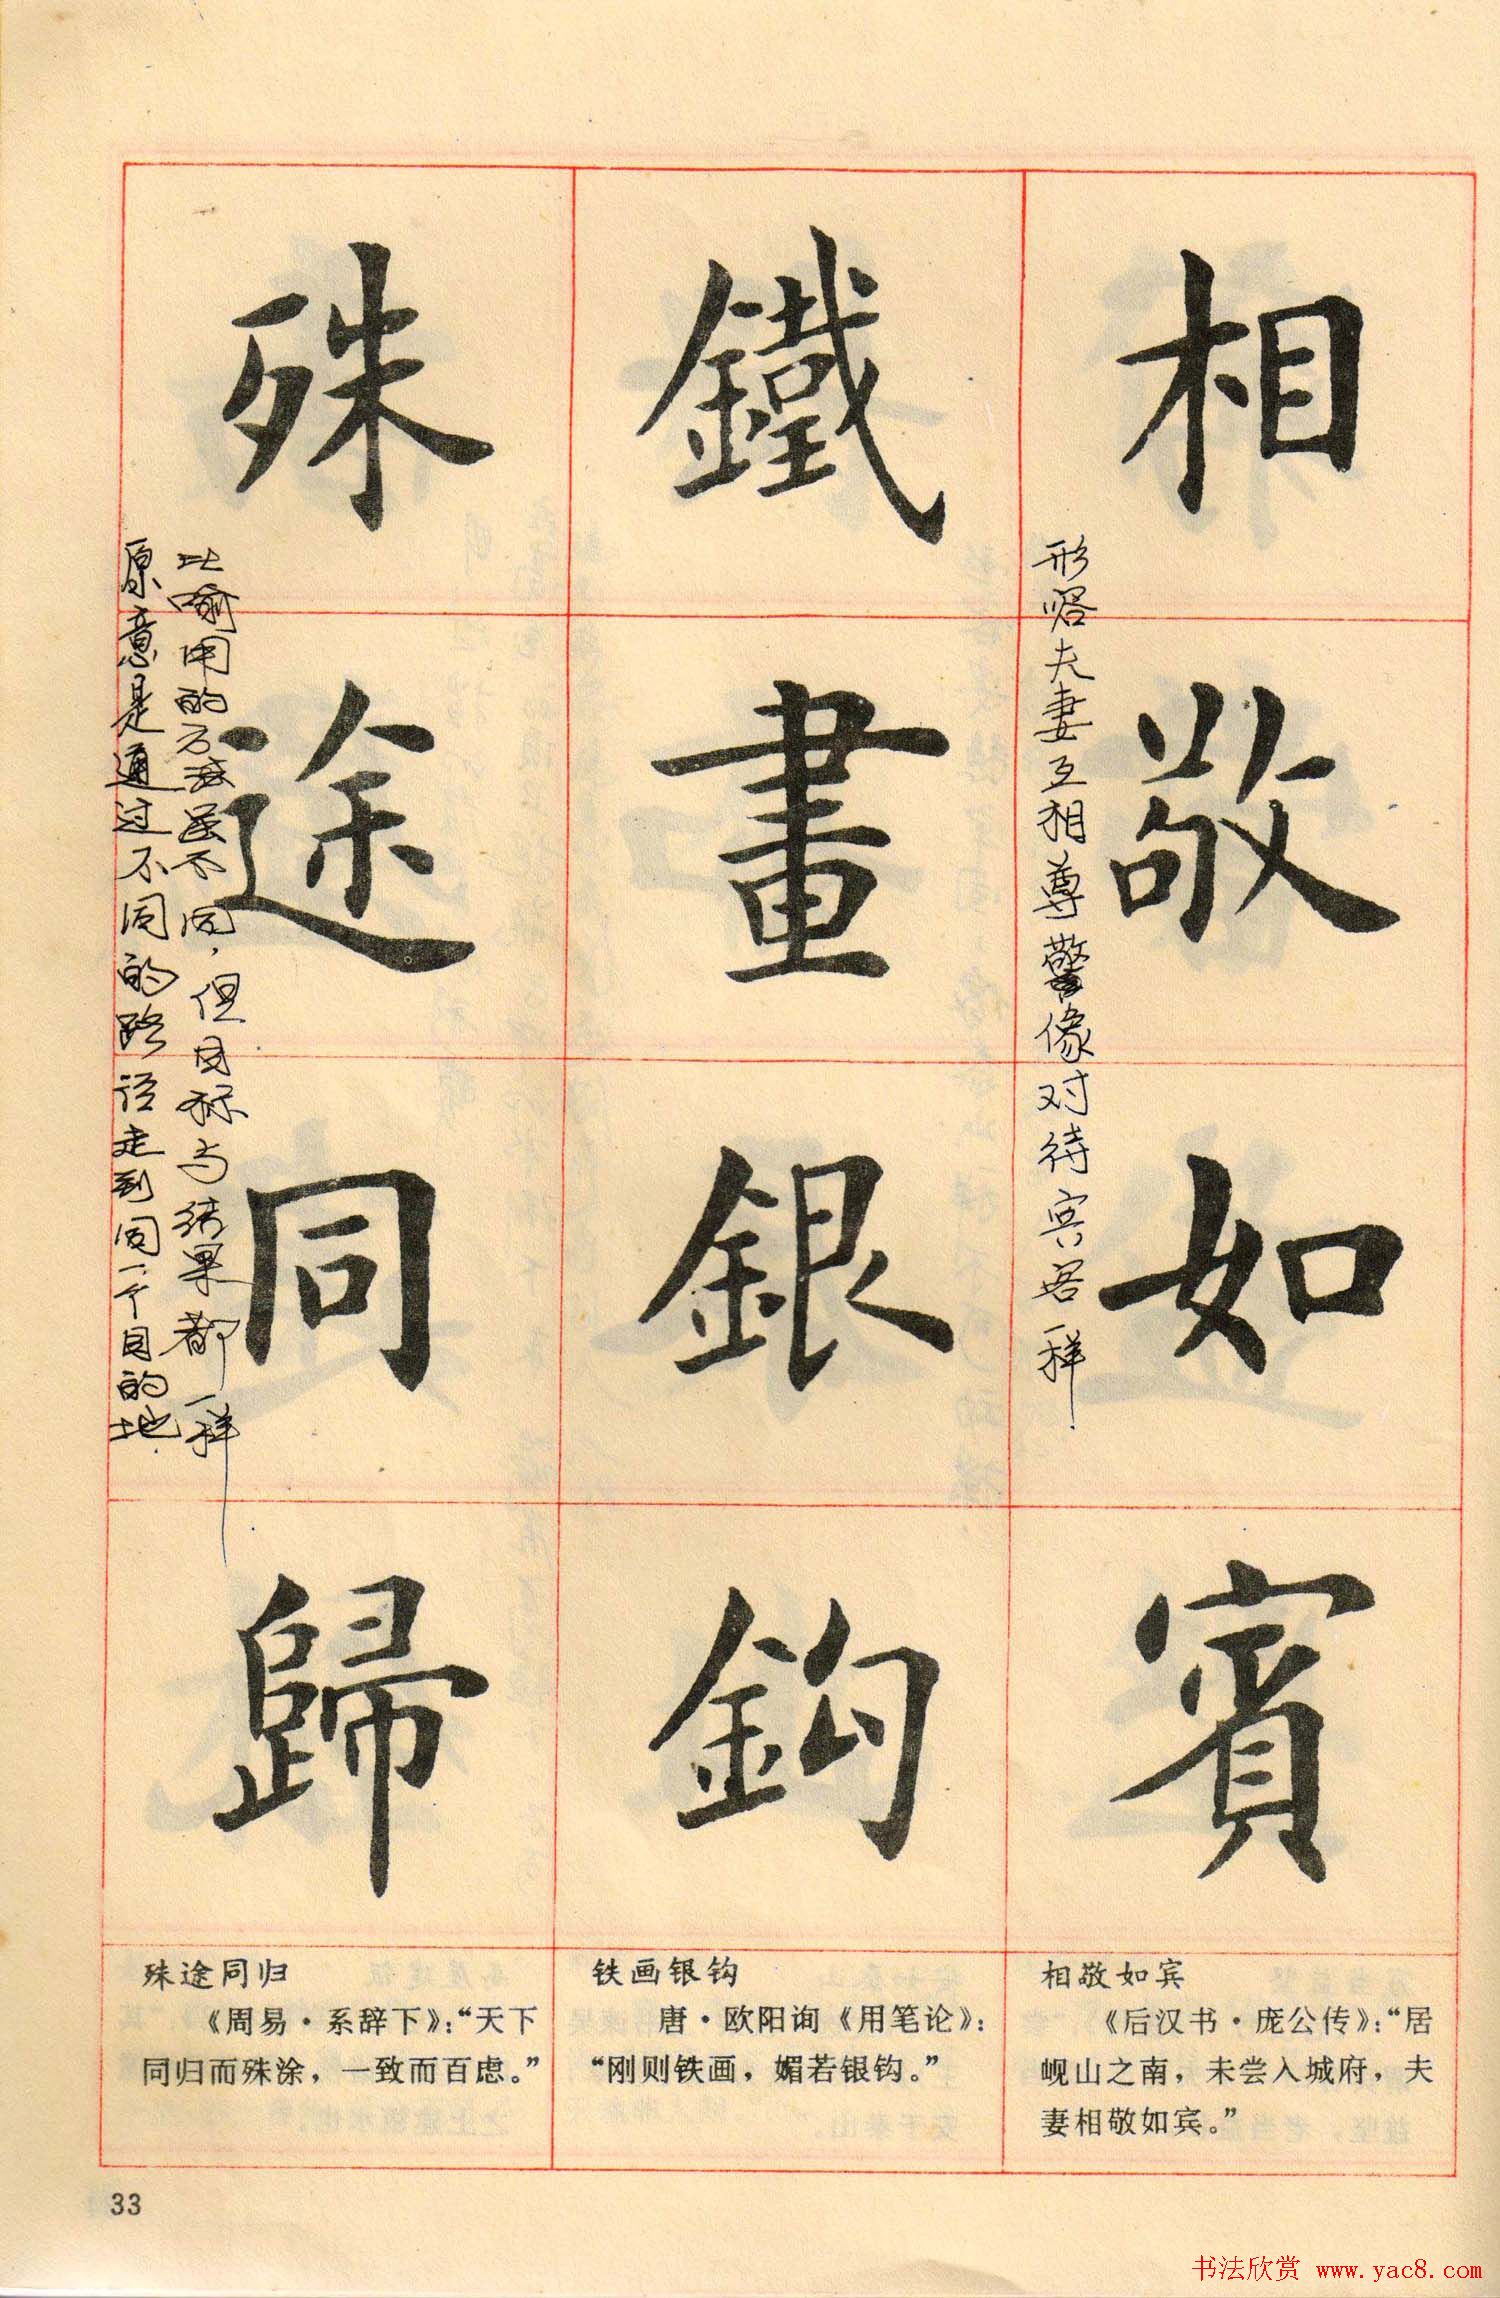 相敬如賓
形容夫妻互相尊敬像对待宾客一样
鐵畫銀鈎
殊途同歸
比喻用的方法虽不同，但目标与结果都一样
原意是通过不同的路径走到同一个目的地
相敬如宾
《后汉书·庞公传》：“居
岘山之南，未尝入城府，夫
妻相敬如宾。”
铁画银钩
唐·欧阳询《用笔论》：
“刚则铁画，媚若银钩。”
殊途同归
《周易·系辞下》：“天下
同归而殊涂，一致而百虑。”
33
书法欣赏 www.yac8.com